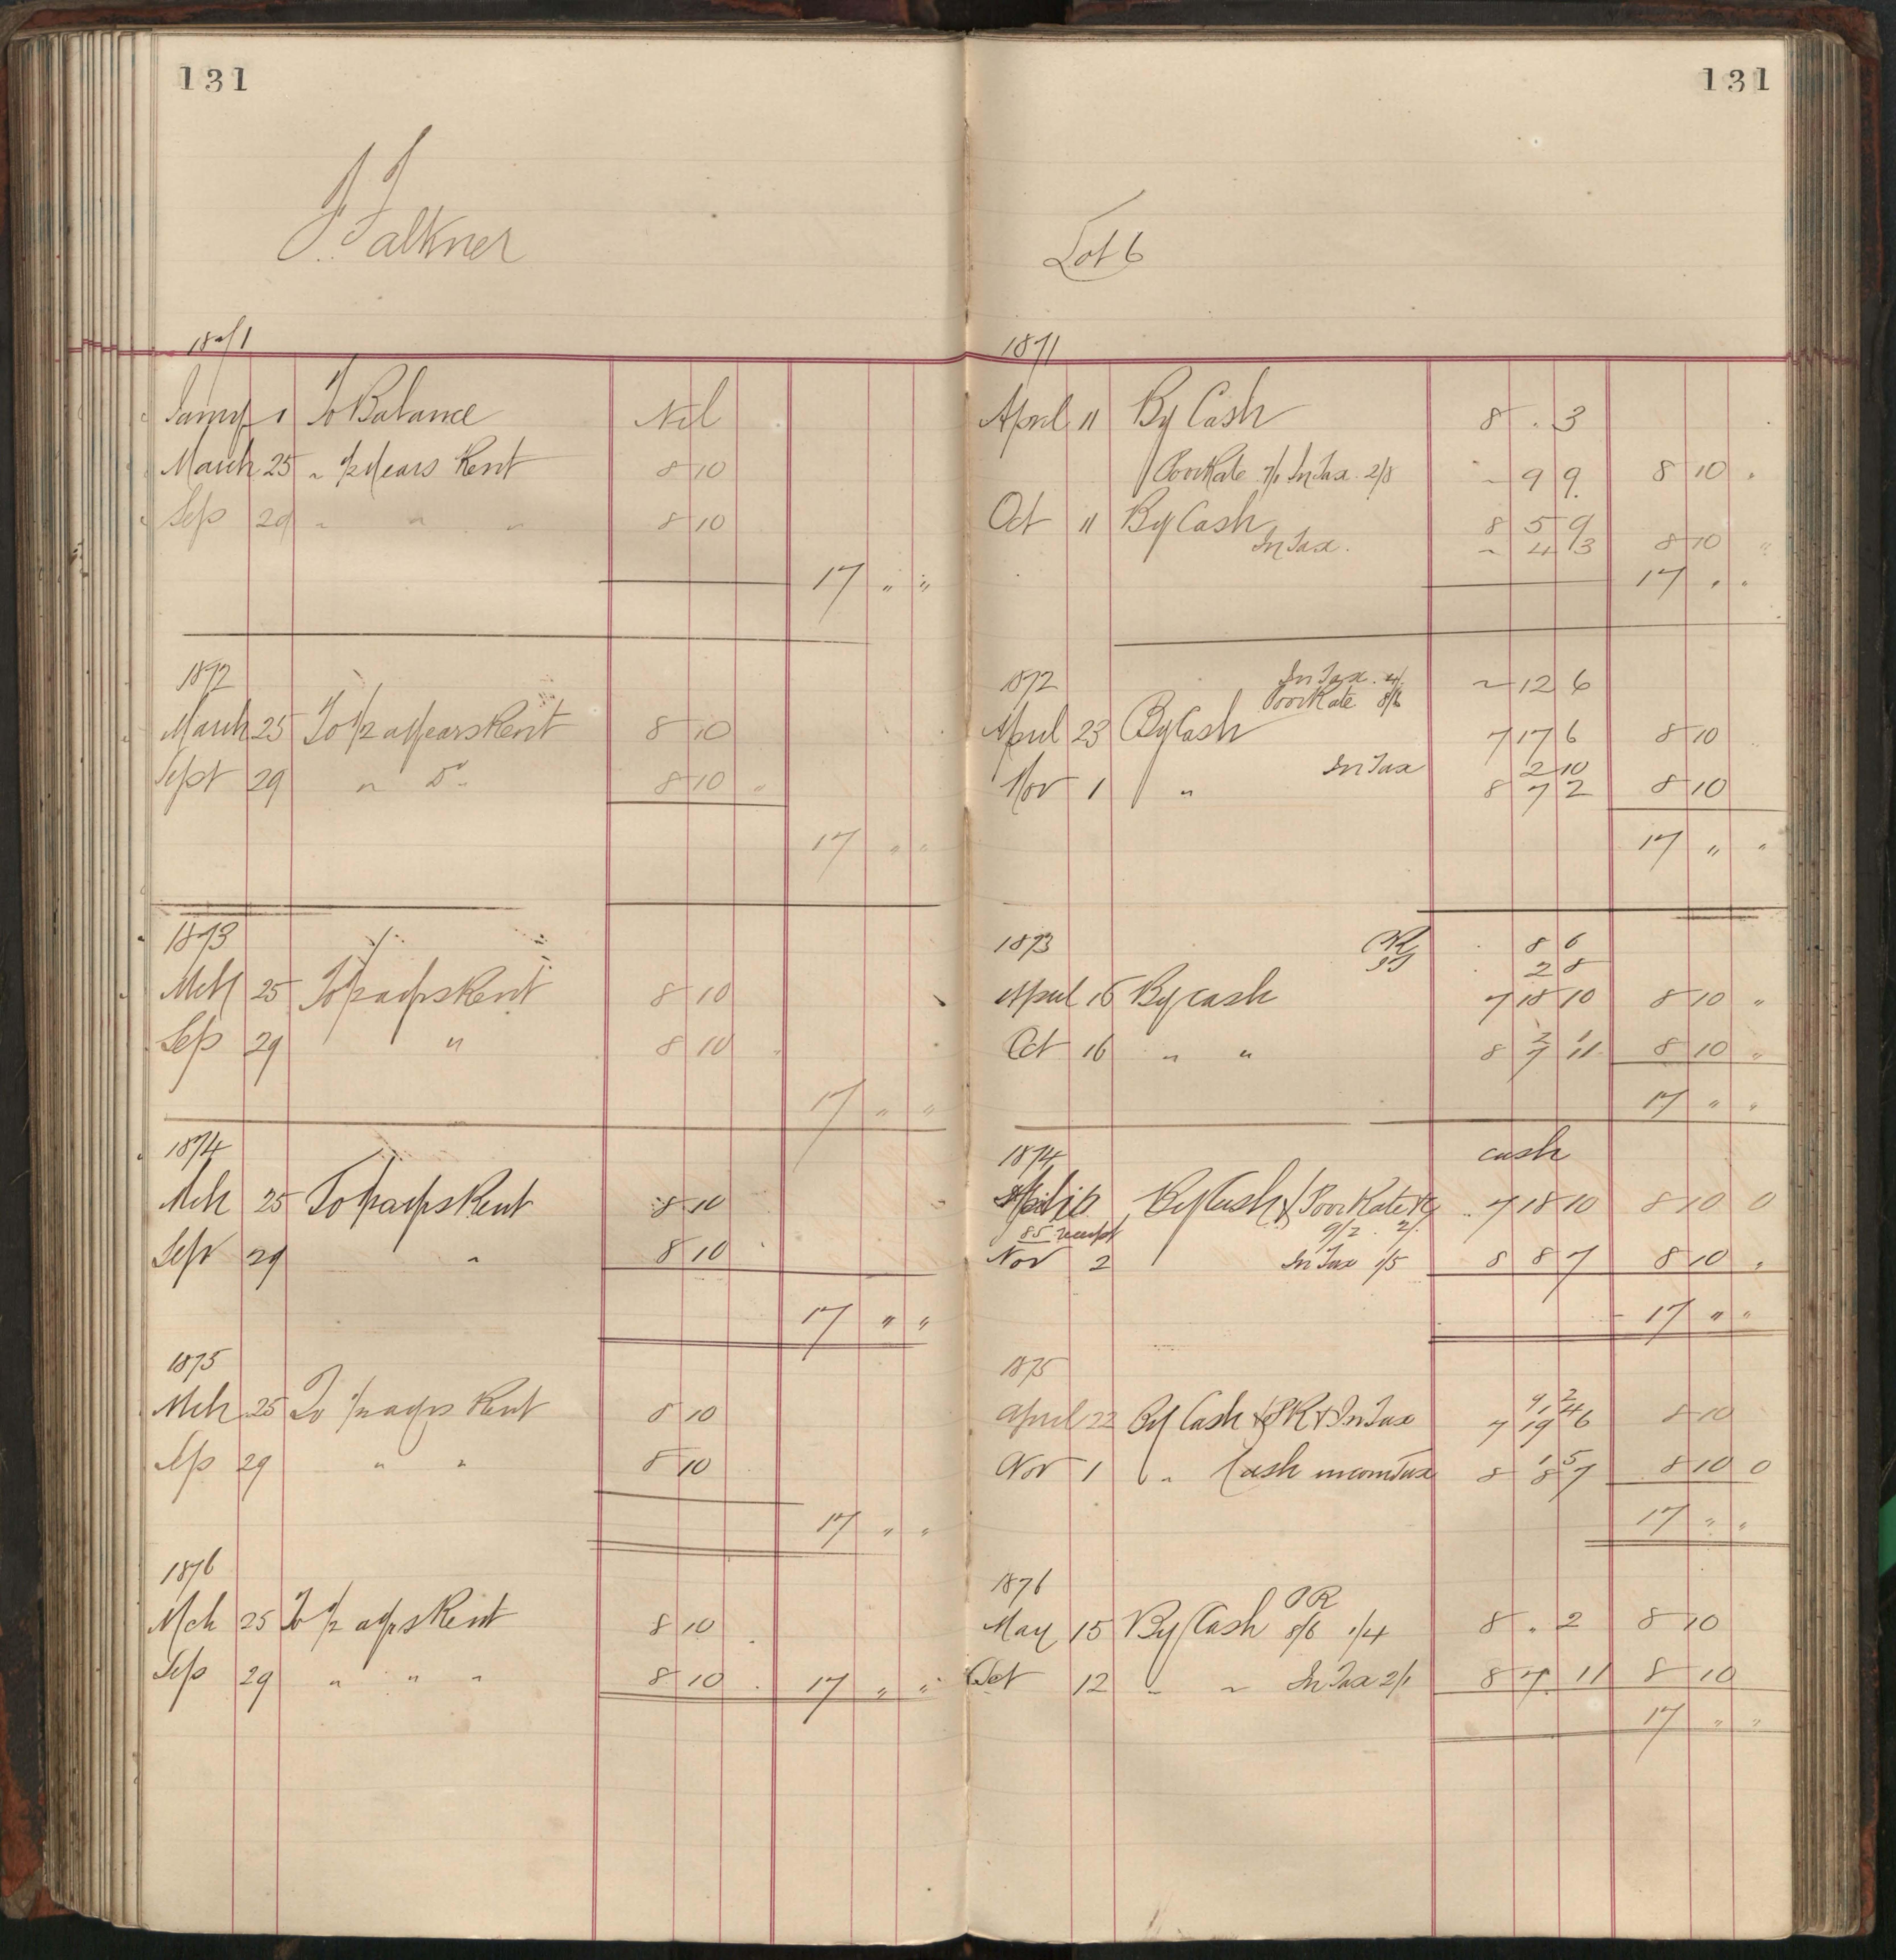 131
J. Falkner
1871
Jany 1 To Balance Nil
March 25 " 1/2 Years Rent 8 10
Sep 29 " " " 8 10
17 " "
1872
March 25 To 1/2 a Years Rent 8 10
Sept 29 " Do 8 10 "
17 " "
1873
Mch 25 To 1/2 a yrs Rent 8 10
Sep 29 " 8 10
17 " "
1874
Mch 25 To 1/2 a yrs Rent 8 10
Sep 29 " 8 10
17 " "
1875
Mch 25 To 1/2 a yrs Rent 8 10
Sep 29 " " 8 10
17 " "
1876
Mch 25 To 1/2 a yrs Rent 8 10
Sep 29 " " " 8 10 17 " "
131
Lot 6
1871
April 11 By Cash 8 . 3
Poor Rate 7/1 In Tax 2/8 " 9 9 8 10 "
Oct 11 By Cash 8 5 9
In Tax " 4 3 8 10 "
17 " "
1872 In Tax 4/ " 12 6
Poor Rate 8/6
April 23 By Cash 7 17 6 8 10
In Tax 2 10
Nov 1 " 8 7 2 8 10
17 " "
1873 PR 8 6
IT 2 8
April 16 By cash 7 18 10 8 10 "
2 1
Oct 16 " " 8 7 11 8 10 "
17 " "
1874 cash
April By Cash & Poor Rate 7 18 10 8 10 0
85 receipt 9/2 2/
Nov 2 In Tax 1/5 8 8 7 8 10 "
17 " "
1875
9 2
1 4
April 22 By Cash & PR & In Tax 7 19 6 8 10
1 5
Nov 1 " Cash incom Tax 8 8 7 8 10 0
17 " "
1876
PR
May 15 By Cash 8/6 1/4 8 . 2 8 10
Oct 12 " " In Tax 2/1 8 7 11 8 10
17 " "